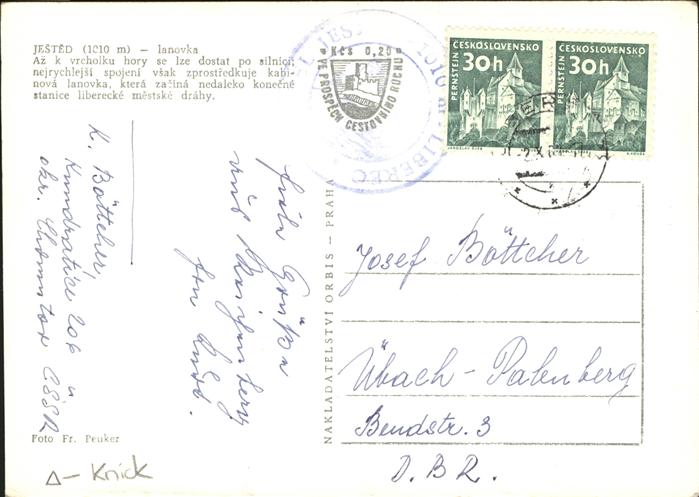 JEŠTĚD (1010 m) — lanovka
Až k vrcholku hory se lze dostat po silnici,
nejrychlejší spojení však zprostředkuje kabi-
nová lanovka, která začíná nedaleko konečné
stanice liberecké městské dráhy.
Kčs 0,20
VE PROSPĚCH CESTOVNÍHO RUCHU
1010 m LIBEREC
ČESKOSLOVENSKO
30h
PERNŠTEJN
ČESKOSLOVENSKO
30h
PERNŠTEJN
K. Böttcher,
Kundratice 206
okr. Chomutov ČSSR
Grüße
NAKLADATELSTVÍ ORBIS — PRAHA
Josef Böttcher
Übach-Palenberg
Bendstr. 3
D.B.R.
Foto Fr. Peuker
Δ – Knick